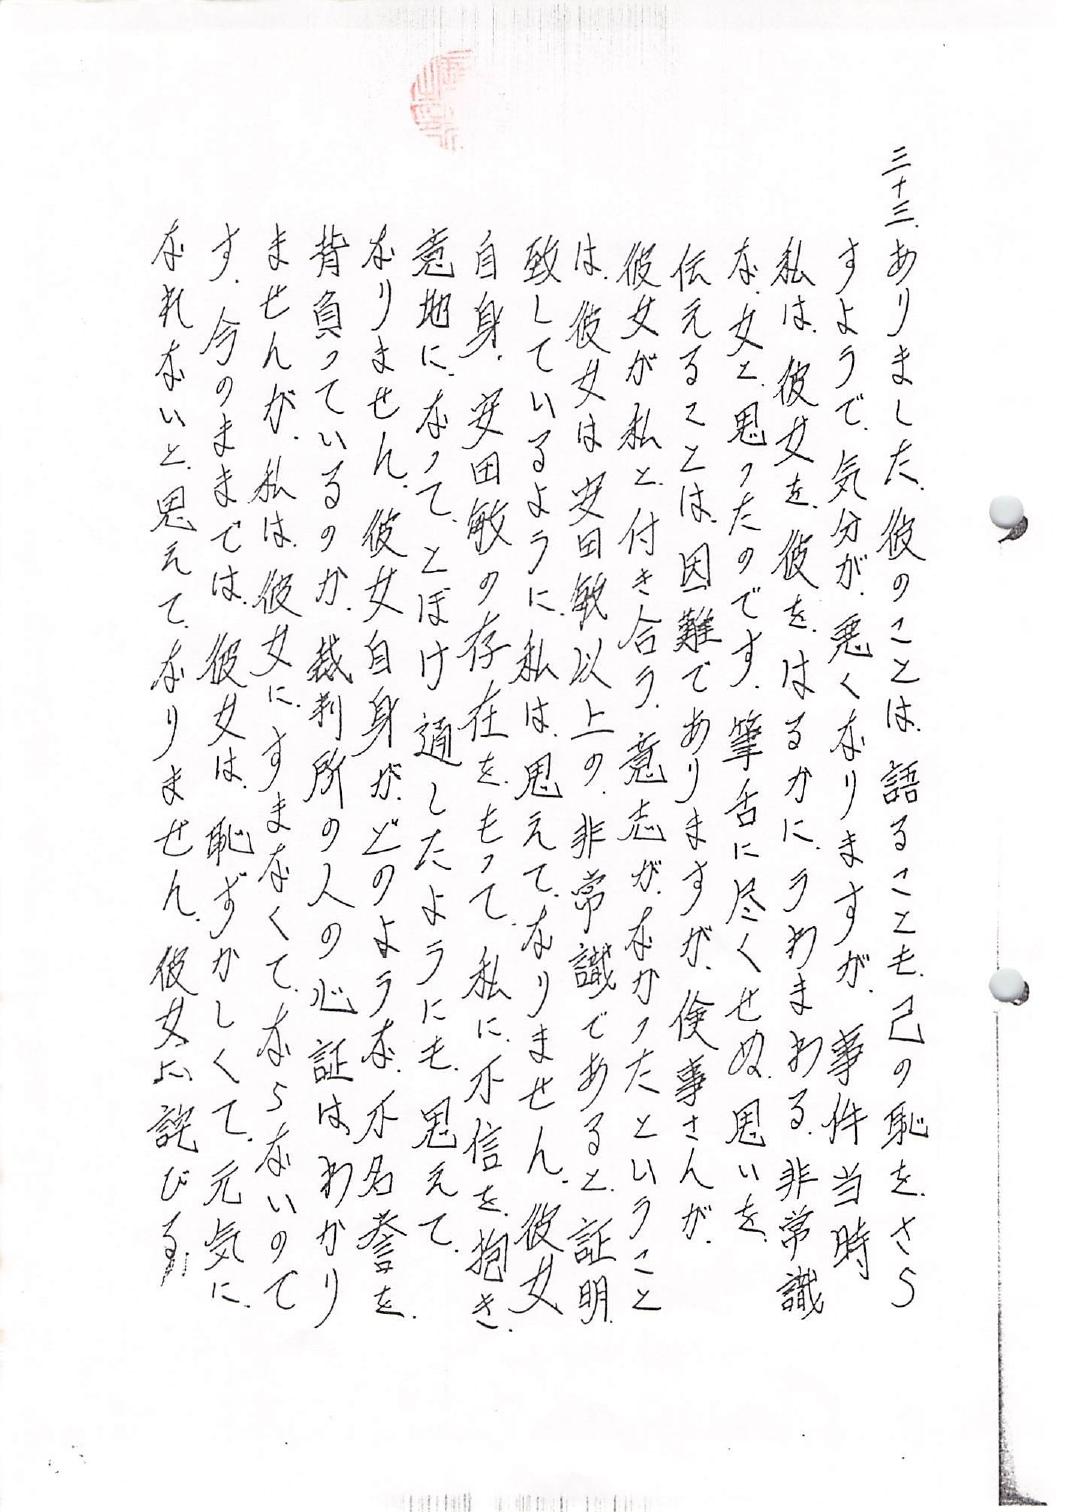 三十三、ありました、彼のことは、語ることも、己の恥を、さら
すようで、気分が、悪くなりますが、事件当時
私は、彼女を、彼を、はるかに、うわまわる、非常識
な、女と、思ったのです、筆舌に尽くせぬ、思いを、
伝えることは、困難でありますが、倹事さんが、
彼女が私と、付き合う、意志が、なかったということ
は、彼女は安田敏以上の、非常識であると、証明
致しているように、私は、思えて、なりません、彼女
自身、安田敏の存在を、もって、私に、不信を、抱き、
意地に、なって、とぼけ通したようにも、思えて、
なりません、彼女自身が、どのような、不名誉を、
背負っているのか、裁判所の人の心証は、わかり
ませんが、私は、彼女に、すまなくて、ならないので
す、今のままでは、彼女は、恥ずかしくて、元気に、
なれないと、思えて、なりません、彼女に詫びる、